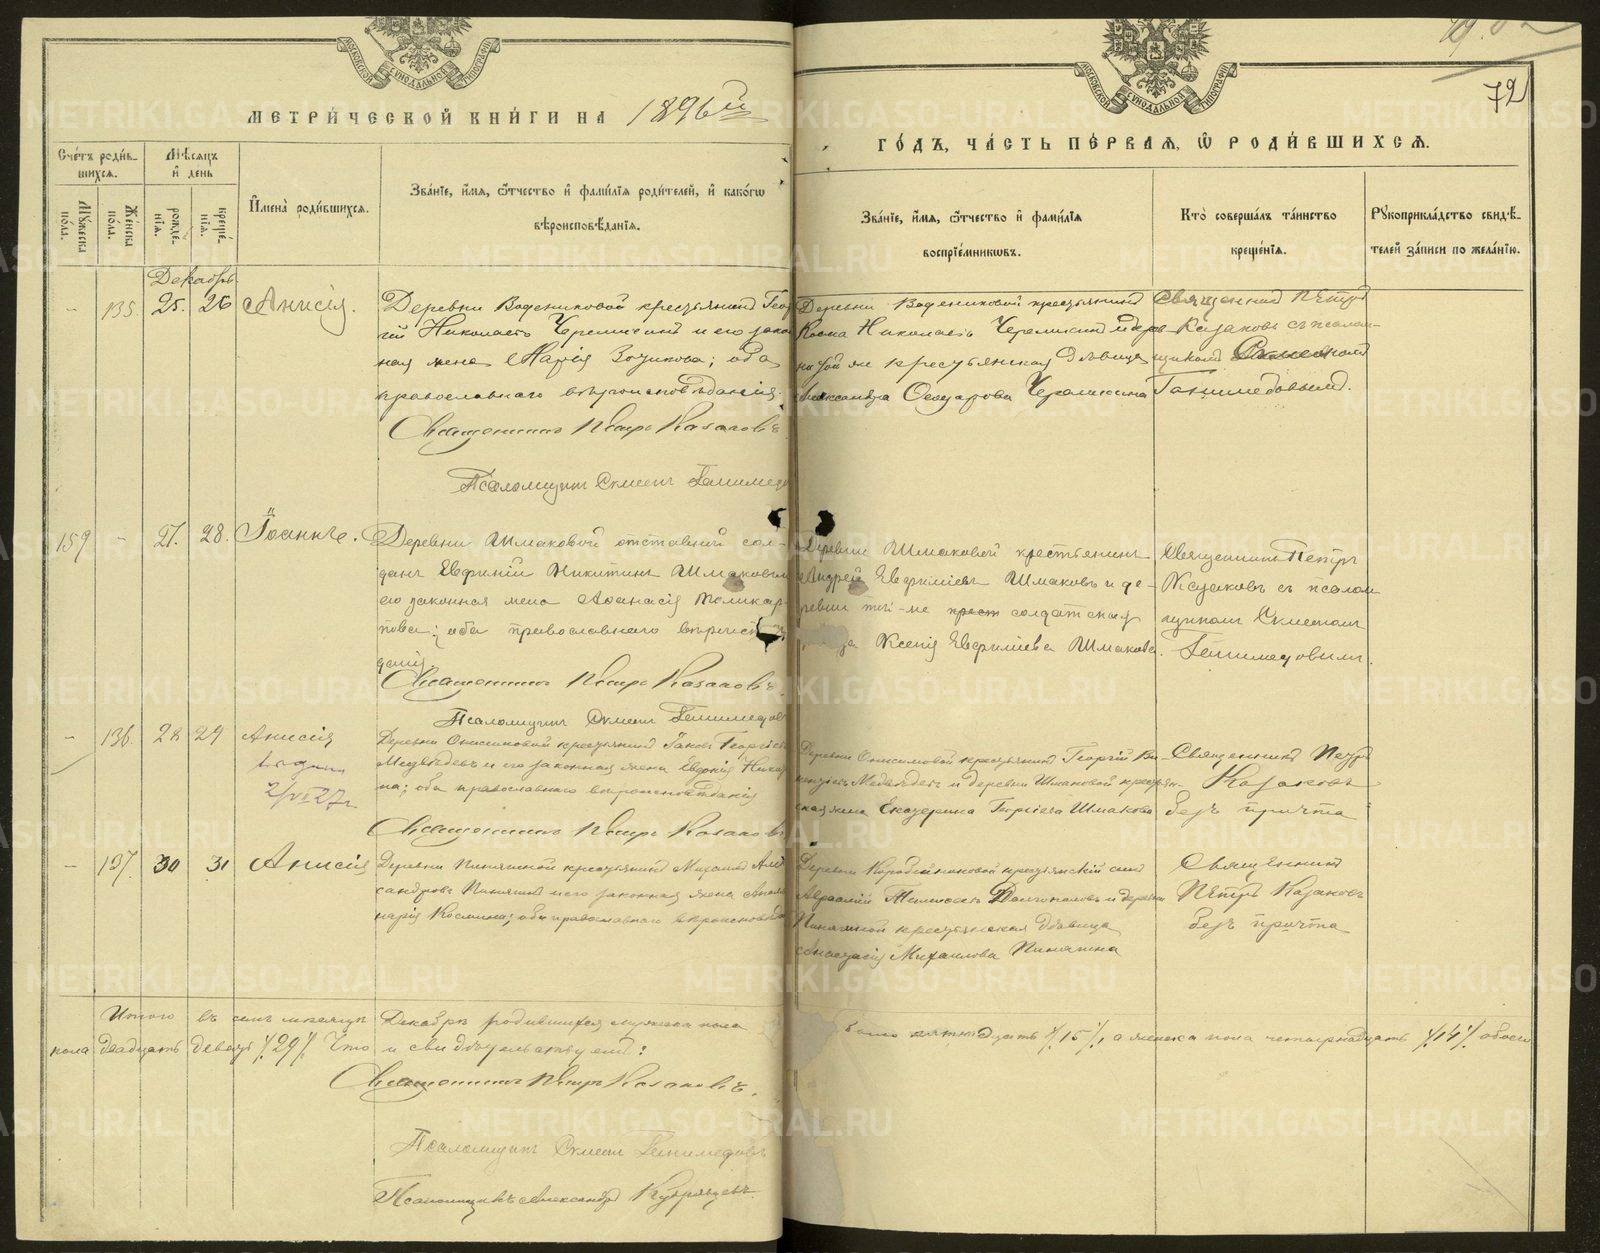 МЕТРИ́ЧЕСКОЙ КНИ́ГИ НА 1896й
ГО́ДЪ, ЧА́СТЬ ПЕ́РВАЯ, Ѿ РОДИ́ВШИХСЯ.
72
МОСКОВСКОЙ СѴНОДАЛЬНОЙ ТИПОГРАФІИ
МОСКОВСКОЙ СѴНОДАЛЬНОЙ ТИПОГРАФІИ
Сче́тъ роди́вшихся.
Мꙋжеска пола.
Же́нска по́ла.
Мѣ́сяцъ и҆ день
рожде́нїя.
креще́нїя.
И҆мена̀ роди́вшихся.
Зва́нїе, и҆́мя, ѻ҆́тчество и҆ фамилїя роди́телей, и҆ како́гѡ вѣроисповѣ́данїя.
Зва́нїе, и҆́мя, ѻ҆́тчество и҆ фами́лїя воспрїе́мникѡвъ.
Кто̀ соверша́лъ та́инство креще́нїя.
Рꙋкоприкла́дство свидѣ́телей за́писи по жела́нїю.
Декабрь
- 135. 25. 26 Анисія.
Деревни Водениковой крестьянинъ Геор-
гій Николаевъ Черемисинъ и его закон-
ная жена Марія Зотикова; оба
православнаго вѣроисповѣданія.
Священникъ Петръ Казаковъ
Псаломщикъ Симеонъ Ганимедовъ
Деревни Водениковой крестьянинъ
Косма Николаевъ Черемисинъ и дерев-
ни той же крестьянская дѣвица
Александра Федорова Черемисина
Священникъ Петръ
Казаковъ съ псалом-
щикомъ Симеономъ
Ганимедовымъ.
159 - 27. 28. Іоаннъ.
Деревни Шмаковой отставной сол-
датъ Евфимій Никитинъ Шмаковъ и
его законная жена Аѳанасія Поликар-
пова; оба православнаго вѣроиспо
данія.
Священникъ Петръ Казаковъ.
Псаломщикъ Симеонъ Ганимедовъ
Деревни Шмаковой крестьянинъ
Андрей Евфиміевъ Шмаковъ и де-
ревни той-же крест солдатская
Ксенія Евфиміева Шмакова.
Священникъ Петръ
Казаковъ съ псалом-
щикомъ Симеономъ
Ганимедовымъ.
- 136. 28 29 Анисія
2/VI 27 г
Деревни Онисимовой крестьянинъ Іаковъ Георгіевъ
Медвѣдевъ и его законная жена Евдокія
на; оба православнаго вѣроисповѣданія
Священникъ Петръ Казаковъ
Деревни Онисимовой крестьянинъ Георгій
Медвѣдевъ и деревни Шмаковой крестьян-
ская жена Екатерина Георгіева Шмакова
Священникъ Петръ
Казаковъ
безъ причта
- 137. 30 31 Анисія
Деревни Пинягиной крестьянинъ Михаилъ Алек-
сандровъ Пинягинъ и его законная жена Аполли-
нарія Космина; оба православнаго вѣроисповѣда
Деревни Коробейниковой крестьянскій сынъ
Авраамій Долгополовъ и деревни
Пинягиной крестьянская дѣвица
Анастасія Михаилова Пинягина
Священникъ
Петръ Казаковъ
безъ причта
Итого въ семъ мѣсяцѣ Декабрѣ родившихся мужеска пола было пятнадцать /15/, а женска пола четырнадцать /14/ обоего
пола двадцать девять /29/. Что и свидѣтельствуемъ:
Священникъ Петръ Казаковъ.
Псаломщикъ Симеонъ Ганимедовъ
Псаломщикъ Александръ Кудрявцевъ.
METRIKI.GASO-URAL.RU